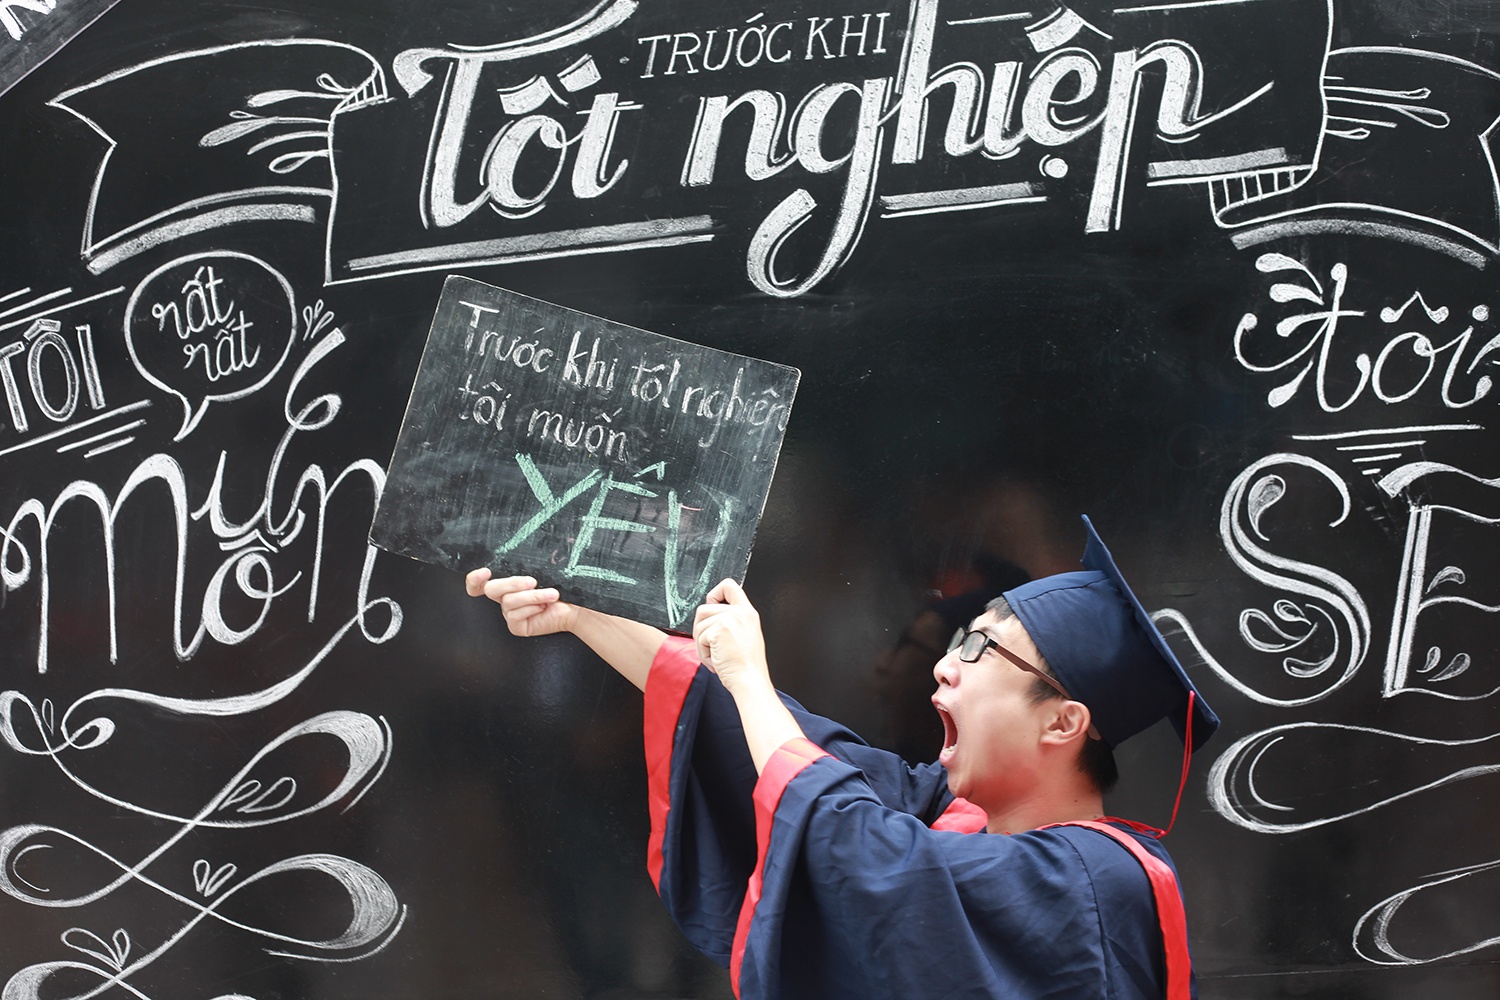 TRƯỚC KHI
Tốt nghiệp
TÔI
rất
rất
muốn
Trước khi tốt nghiệp
tôi muốn
YÊU
tôi
SẼ